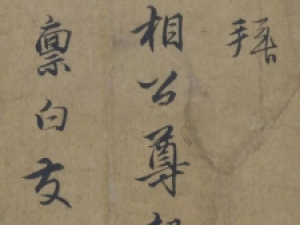 拜
相公尊
稟白友